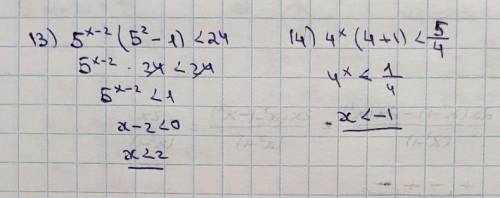 13) 5^(x-2) (5^2 - 1) < 24
5^(x-2) · 24 < 24
5^(x-2) < 1
x - 2 < 0
x < 2
14) 4^x (4 + 1) < 5/4
4^x < 1/4
x < -1